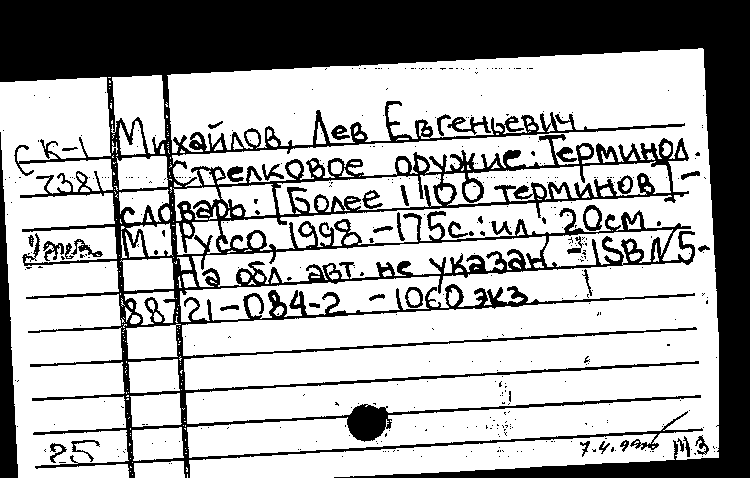 Михайлов, Лев Евгеньевич.
Є К-1
7381
Стрелковое оружие: Терминол.
словарь: [Более 1100 терминов]-
М.: Руссо, 1998.-175с.:ил.; 20см.
На обл. авт. не указан. - ISBN 5-
88721-084-2. - 1060 экз.
25
7.4.99